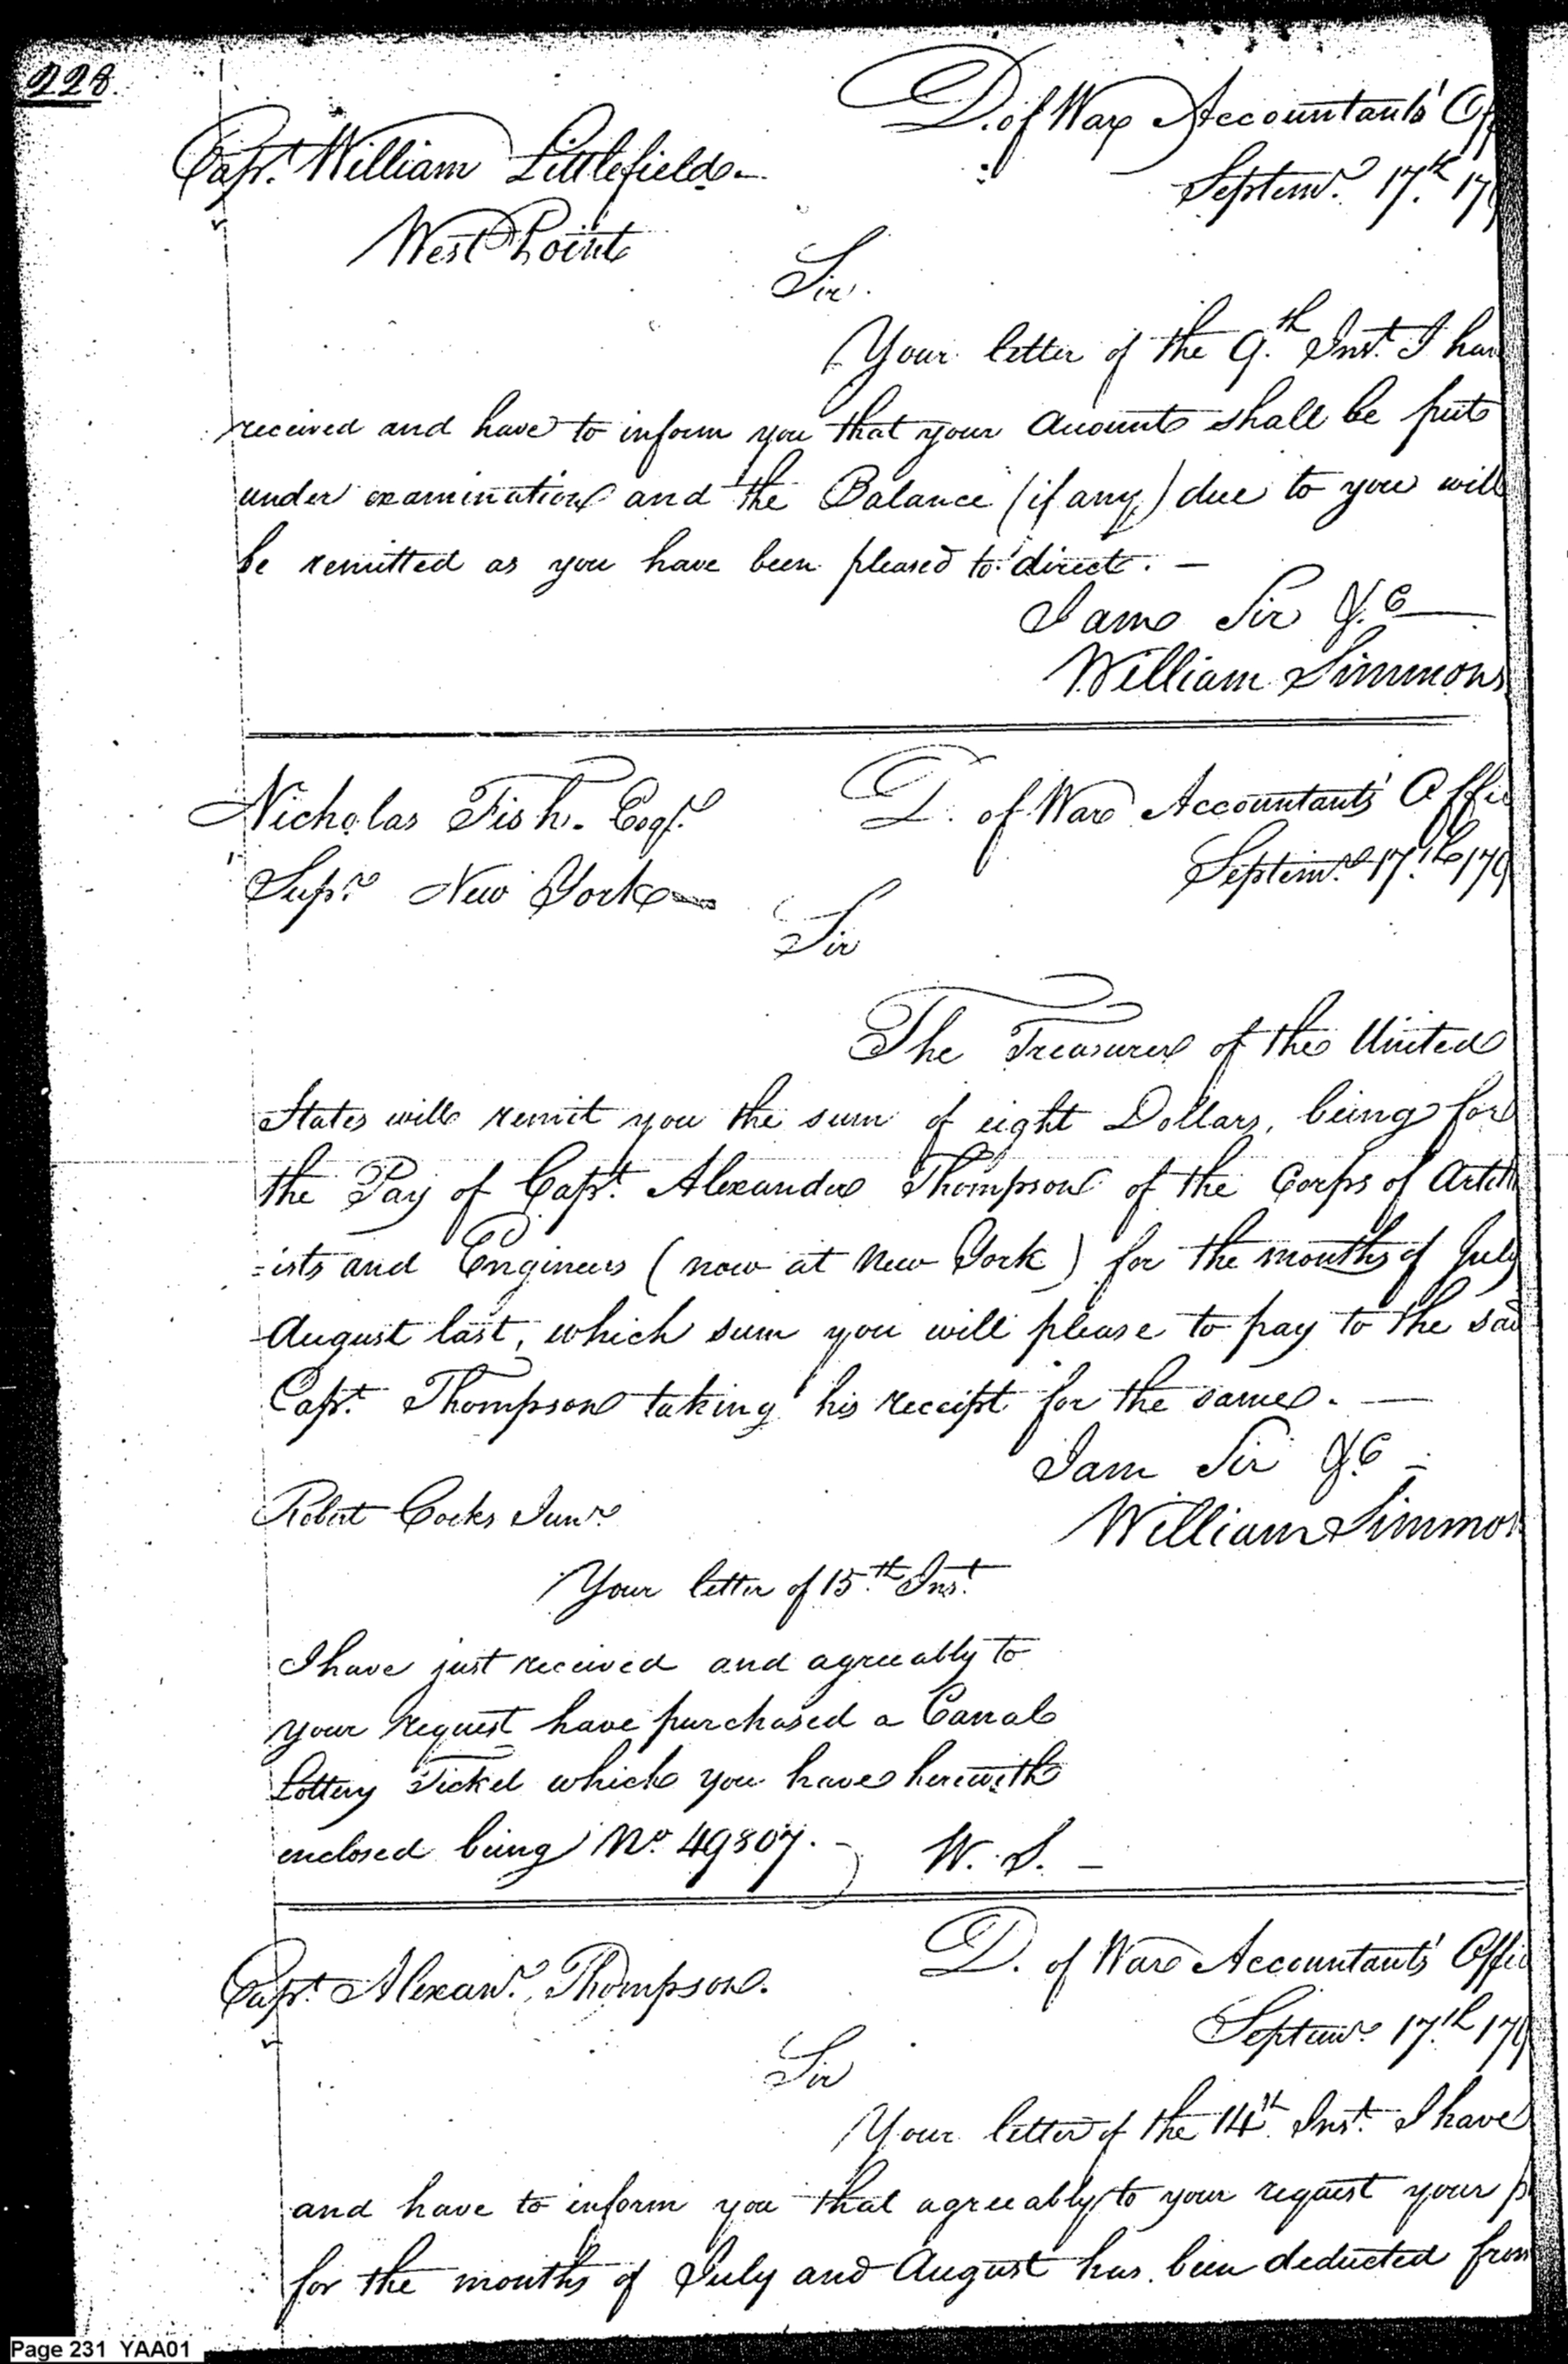 228.
D. of War Accountants' Of
Capt. William Littlefield
Septemr. 17th 179
West Point
Sir.
Your letter of the 9th Inst. I hav
received and have to inform you that your Accounts shall be put
under examination and the Balance (if any) due to you will
be remitted as you have been pleased to direct. —
I am Sir &c
William Simmons
Nicholas Fish. Esqr.
D. of War Accountants' Offic
Supr. New York
Septemr. 17th 179
Sir
The Treasurer of the United
States will remit you the sum of eight Dollars, being for
the Pay of Capt. Alexander Thompson of the Corps of Artill
-ists and Engineers (now at New York) for the months of July
August last, which sum you will please to pay to the said
Capt. Thompson taking his receipt for the same. —
I am Sir &c
William Simmon
Robert Cocks Junr.
Your letter of 15th Inst.
I have just received and agreeably to
your request have purchased a Canal
Lottery Ticket which you have herewith
enclosed being No. 49807. —
W. S. —
D. of War Accountants' Offic
Capt. Alexanr. Thompson.
Septemr. 17th 179
Sir
Your letter of the 14th Inst. I have
and have to inform you that agreeably to your request your p
for the months of July and August has been deducted from
Page 231 YAA01